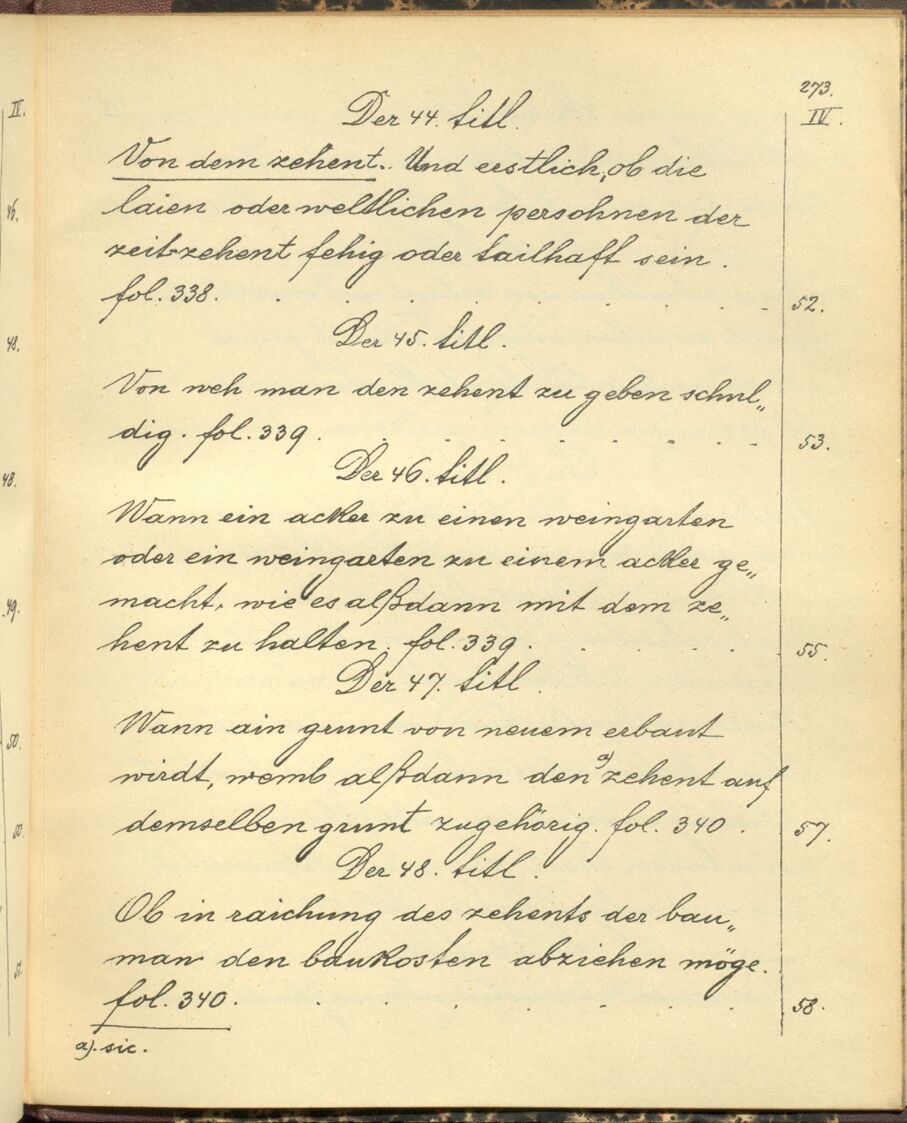 273.
IV.
Der 44. titl.
Von dem zehent. Und erstlich, ob die
laien oder weltlichen persohnen der
zeit zehent fehig oder tailhaft sein.
fol. 338. 52.
Der 45. titl.
Von weh man den zehent zu geben schul„
dig. fol. 339. 53.
Der 46. titl.
Wann ein acker zu einen weingarten
oder ein weingarten zu einem acker ge„
macht, wie es alßdann mit dem ze„
hent zu halten. fol. 339. 55.
Der 47. titl.
Wann ain grunt von neuem erbaut
wirdt, wemb alßdann den a) zehent auf
demselben grunt zugehörig. fol. 340. 57.
Der 48. titl.
Ob in raichung des zehents der bau„
man den baukosten abziehen möge.
fol. 340. 58.
a) sic.
IV.
46.
48.
48.
49.
50.
50.
51.